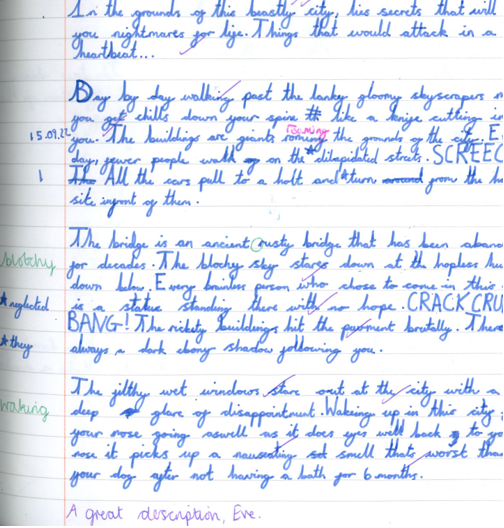 In the grounds of this beastly city, lies secrets that will
you nightmares for life. Things that would attack in a
heartbeat...
Day by day walking past the lanky gloomy skyscrapers
you get chills down your spine like a knife cutting
15.09.22 you. The buildings are giants roaming the grounds of the city.
day, fewer people walk on the dilapidated streets. SCREEC
1 All the cars pull to a holt and turn from the
site infront of them.
The bridge is an ancient rusty bridge that has been
blotchy for decades. The blochy sky stares down at the hopless
down below. Every brainless person who chose to come in this
*neglected is a statue standing there with no hope. CRACK
BANG! The rickety buildings hit the pavment brutally.
*they always a dark ebony shadow following you.
The filthy wet windows stare out at the city with a
waking deep glare of disappointment. Wakeing up in this city
your nose going aswell as it does yes well back to
nose it picks up a nauseating smell thats worst
your dog after not having a bath for 6 months.
A great description, Eve.